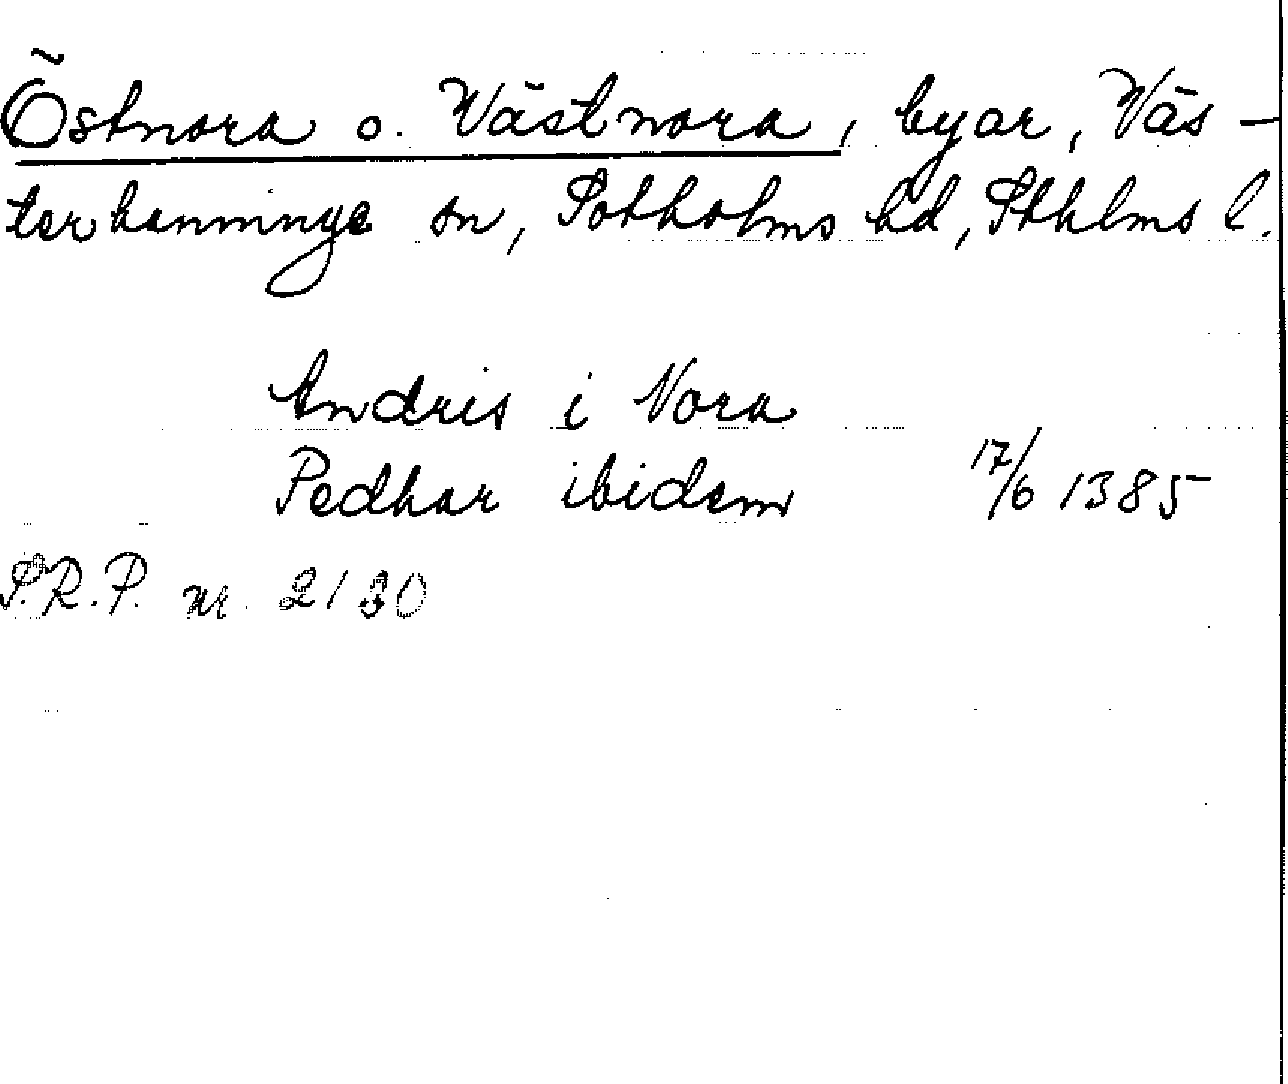 Östnora o. Västnora, byar, Väs-
terhaninge sn, Sotholms hd, Sthlms l.
Andris i Nora
Pedhar ibidem 17/6 1385
S.R.P. nr. 2130